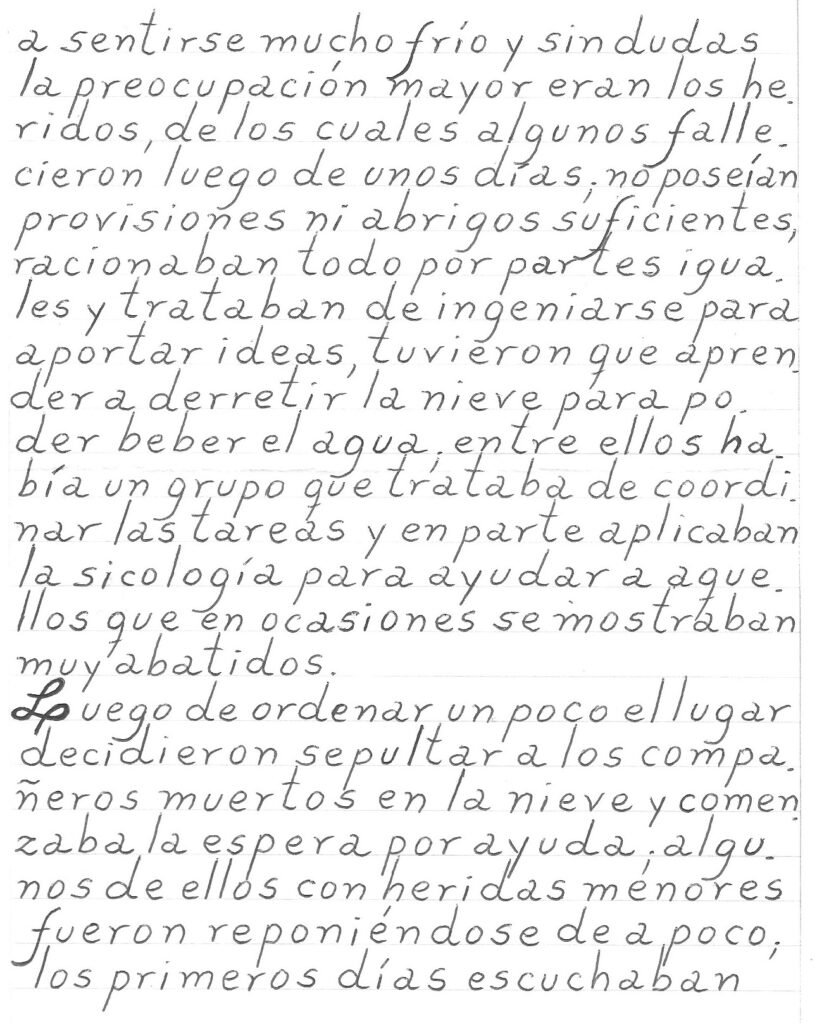 a sentirse mucho frío y sin dudas
la preocupación mayor eran los he-
ridos, de los cuales algunos falle-
cieron luego de unos días; no poseían
provisiones ni abrigos suficientes,
racionaban todo por partes igua-
les y trataban de ingeniarse para
aportar ideas, tuvieron que apren-
der a derretir la nieve para po-
der beber el agua; entre ellos ha-
bía un grupo que trataba de coordi-
nar las tareas y en parte aplicaban
la sicología para ayudar a aque-
llos que en ocasiones se mostraban
muy abatidos.
Luego de ordenar un poco el lugar
decidieron sepultar a los compa-
ñeros muertos en la nieve y comen-
zaba la espera por ayuda; algu-
nos de ellos con heridas menores
fueron reponiéndose de a poco;
los primeros días escuchaban